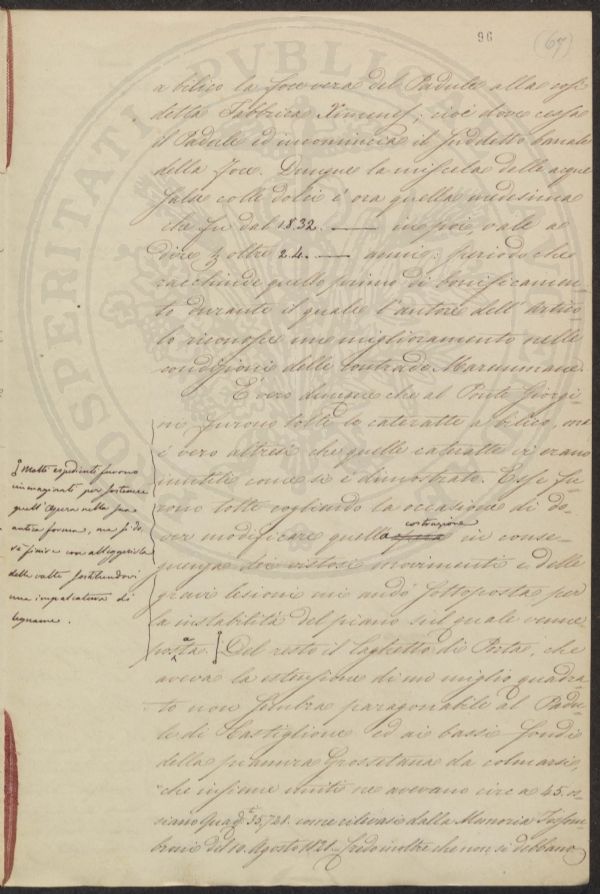 96
(67)
a bilico la foce vera del Padule alla così
detta Fabbrica Ximenes, cioè dove cessa
il Padule ed incomincia il suddetto Canale
della Foce. Dunque la miscela delle acque
salse colle dolci è ora quella medesima
che fu dal 1832. — in poi, vale a
dire oltre 24. — anni: periodo che
racchiude quello primo di bonificamen-
to durante il quale l'autore dell'Artico-
lo riconosce un miglioramento nelle
condizioni delle contrade Maremmane.
È vero dunque che al Ponte Giorgi-
ni furono tolte le cateratte a bilico, ma
è vero altresì che quelle cateratte vi erano
inutili come si è dimostrato. Esse fu-
rono tolte cogliendo la occasione di do-
ver modificare quella costruzione in conse-
guenza dei vistosi movimenti e delle
gravi lesioni cui andò sottoposta per
la instabilità del piano sul quale venne
posta. Del resto il laghetto di Porta, che
aveva la estensione di un miglio quadra-
to non sembra paragonabile al Padu-
le di Castiglione ed ai bassi fondi
della pianura Grossetana da colmarsi,
che insieme uniti ne avevano circa 45.
Quadi 35,721. come rilevasi dalla Memoria
del 10. Agosto 1828. Credo inoltre che non si debbano
Molti espedienti furono
immaginati per sostenere
quell'Opera nella sua
antica forma, ma si do-
vè finire con alleggerirla
delle volte sostituendovi
una impalcatura di
legname.
PROSPERITATI PVBLICAE